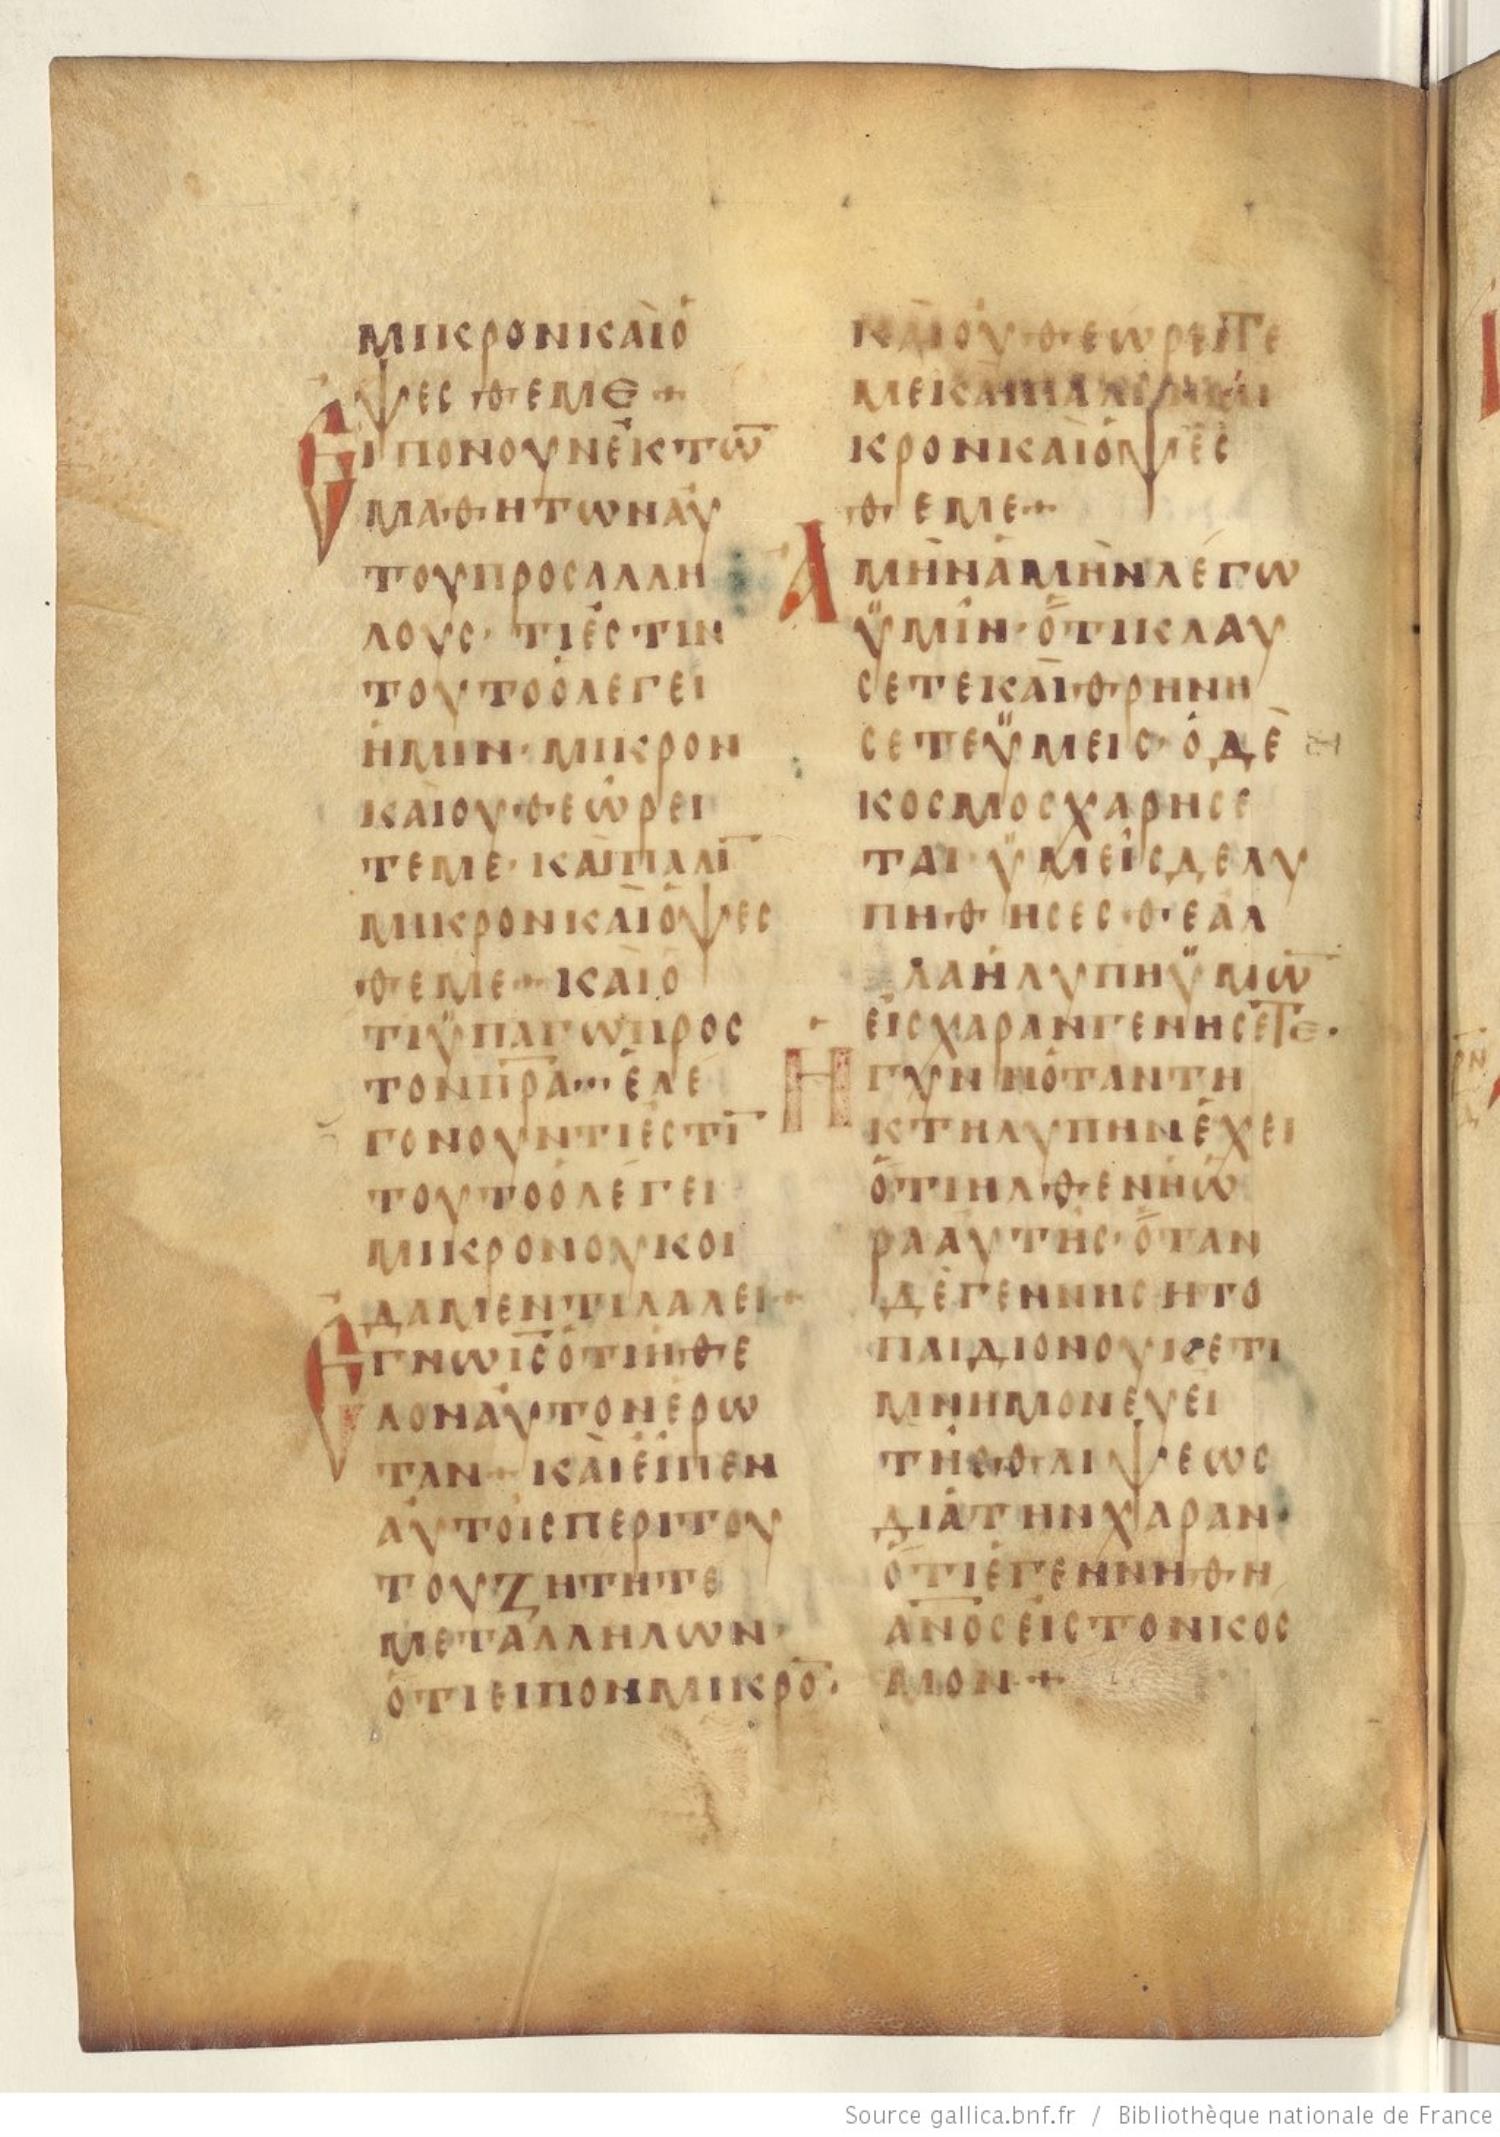 ΜΙΚΡΟΝΚΑΙΟ
ΨΕΣΘΕΜΕ+
ΕΙΠΟΝΟΥΝΕΚΤΩ̅
ΜΑΘΗΤΩΝΑΥ
ΤΟΥΠΡΟΣΑΛΛΗ
ΛΟΥΣ· ΤΙΕΣΤΙΝ
ΤΟΥΤΟΟΛΕΓΕΙ
ΗΜΙΝ·ΜΙΚΡΟΝ
ΚΑΙΟΥΘΕΩΡΕΙ
ΤΕΜΕ·ΚΑΙΠΑΛΙ̅
ΜΙΚΡΟΝΚΑΙΟΨΕΣ
ΘΕΜΕ+ΚΑΙΟ
ΤΙΫΠΑΓΩΠΡΟΣ
ΤΟΝΠ̅Ρ̅Α̅·ΕΛΕ
ΓΟΝΟΥΝΤΙΕΣΤΙ̅
ΤΟΥΤΟΟΛΕΓΕΙ
ΜΙΚΡΟΝΟΥΚΟΙ
ΔΑΜΕΝΤΙΛΑΛΕΙ+
ΕΓΝΩΙ̅Σ̅ΟΤΙΗΘΕ
ΛΟΝΑΥΤΟΝΕΡΩ
ΤΑΝ+ΚΑΙΕΙΠΕΝ
ΑΥΤΟΙΣΠΕΡΙΤΟΥ
ΤΟΥΖΗΤΗΤΕ
ΜΕΤΑΛΛΗΛΩΝ·
ΟΤΙΕΙΠΟΝΜΙΚΡΟ̅·
ΚΑΙΟΥΘΕΩΡΕΙΤΕ
ΜΕΚΑΙΠΑΛΙΝΜΙ
ΚΡΟΝΚΑΙΟΨΕΣ
ΘΕΜΕ+
ΑΜΗΝΑΜΗΝΛΕΓΩ
ΫΜΙΝ·ΟΤΙΚΛΑΥ
ΣΕΤΕΚΑΙΘΡΗΝΗ
ΣΕΤΕΫΜΕΙΣ·ΟΔΕ
ΚΟΣΜΟΣΧΑΡΗΣΕ
ΤΑΙ·ΫΜΕΙΣΔΕΛΥ
ΠΗΘΗΣΕΣΘΕΑΛ
ΛΑΗΛΥΠΗΫΜΩ̅
ΕΙΣΧΑΡΑΝΓΕΝΗΣΕΤΕ·
ΗΓΥΝΗΟΤΑΝΤΗ
ΚΤΗΛΥΠΗΝΕΧΕΙ
ΟΤΙΗΛΘΕΝΗΩ
ΡΑΑΥΤΗΣ·ΟΤΑΝ
ΔΕΓΕΝΝΗΣΗΤΟ
ΠΑΙΔΙΟΝΟΥΚΕΤΙ
ΜΝΗΜΟΝΕΥΕΙ
ΤΗΣΘΛΙΨΕΩΣ
ΔΙΑΤΗΝΧΑΡΑΝ·
ΟΤΙΕΓΕΝΝΗΘΗ
Α̅Ν̅Ο̅Σ̅ΕΙΣΤΟΝΚΟΣ
ΜΟΝ+
Source gallica.bnf.fr / Bibliothèque nationale de France